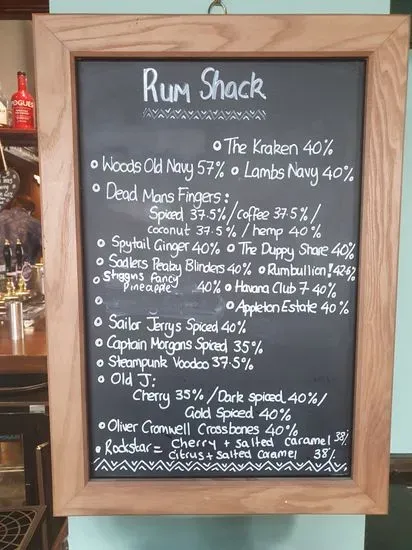 Rum Shack
• The Kraken 40%
• Woods Old Navy 57% • Lambs Navy 40%
• Dead Mans Fingers:
Spiced 37.5% / coffee 37.5% /
coconut 37.5% / hemp 40%
• Spytail Ginger 40% • The Duppy Share 40%
• Sadlers Peaky Blinders 40% • Rumbullion! 42.6%
• Stiggins Fancy
Pineapple 40% • Havana Club 7 40%
• Appleton Estate 40%
• Sailor Jerrys Spiced 40%
• Captain Morgans Spiced 35%
• Steampunk Voodoo 37.5%
• Old J:
Cherry 35% / Dark spiced 40% /
Gold Spiced 40%
• Oliver Cromwell Crossbones 40%
• Rockstar = Cherry + salted caramel 38%
citrus + salted caramel 38%
POGUES